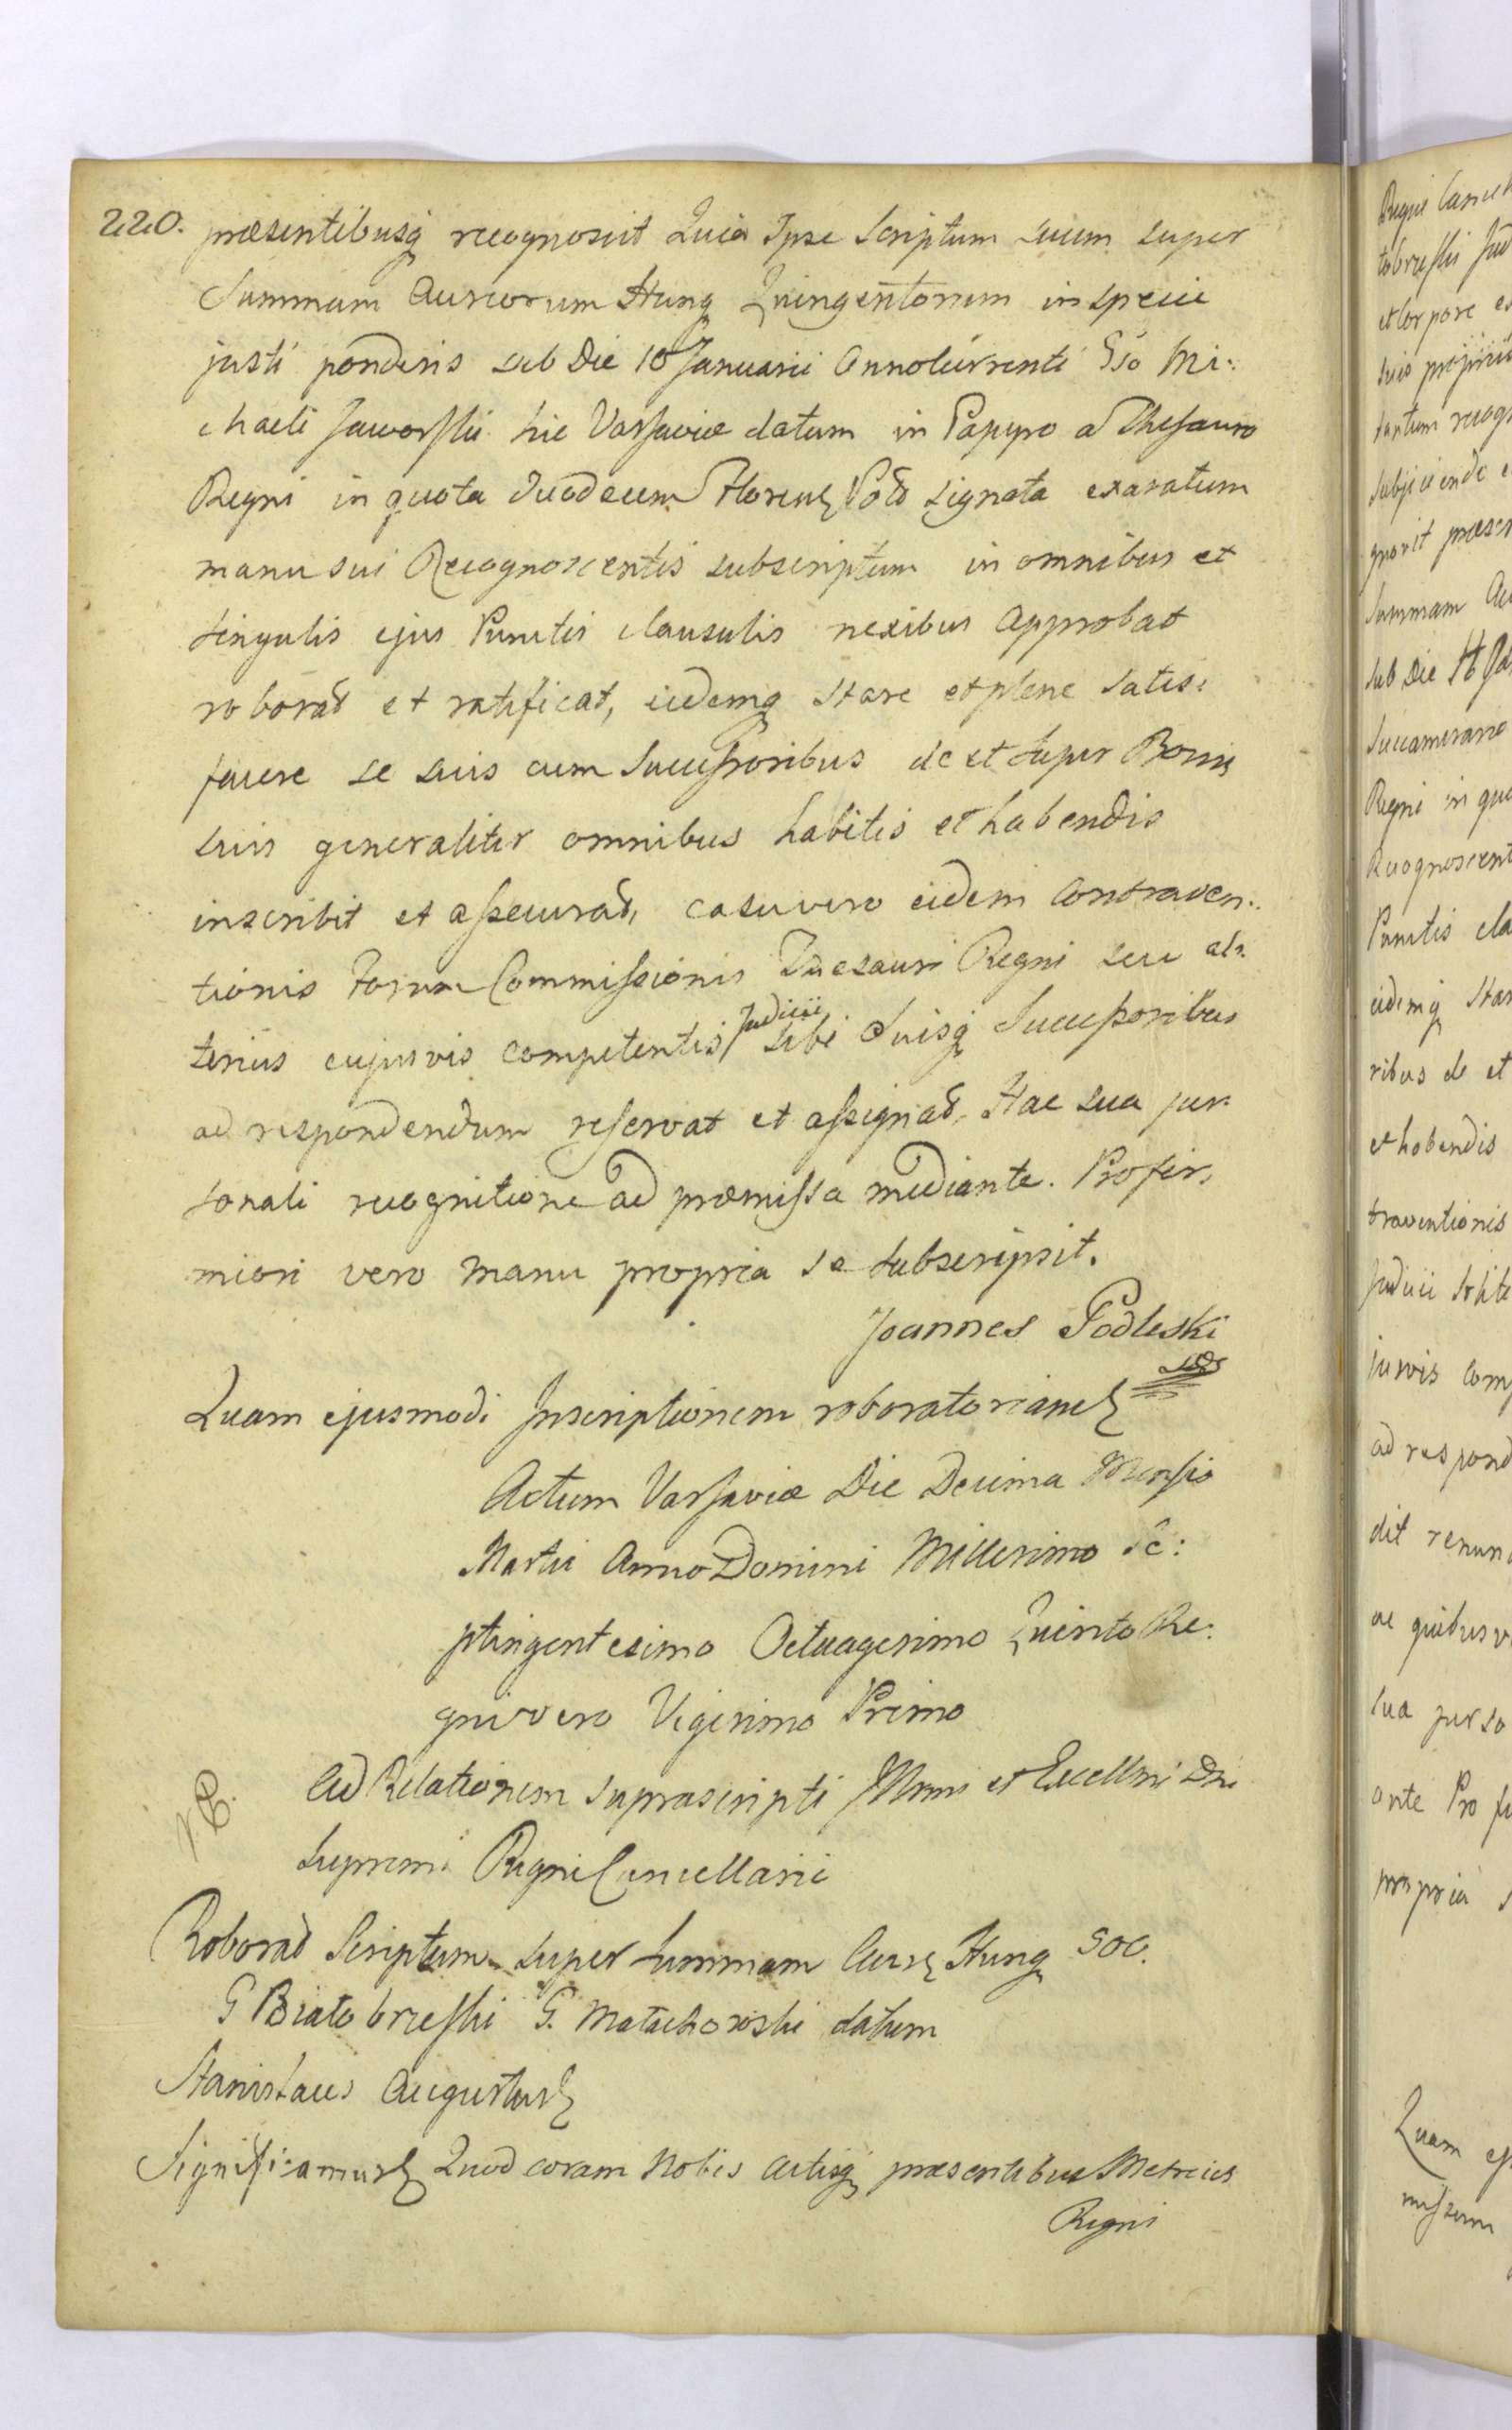 220. præsentibusq recognovit Quia Ipse Scriptum suum super
Summam Aureorum Hung Quingentorum in specie
justi ponderis sub Die 10 Januarii Anno Currenti Gso Mi:
chaeli Jaworski hic Varsaviæ datum in Papyro a Thesauro
Regni in quota duodecem Floren Pold signata exaratum
manu sui Recognoscentis subscriptum in omnibus et
singulis ejus Punctis clausulis nexibus approbat
roborat et ratificat, eidemq stare et plene satis:
facere se suis cum Successoribus de et super Bonis
suis generaliter omnibus habitis et habendis
inscribit et assecurat, casu vero eidem contraven:
tionis Forum Commissionis Thesauri Regni seu al:
terius cujusvis competentis Judicii sibi Suisq Successoribus
ad respondendum reservat et assignat, Hac sua per:
sonali recognitione ad præmissa mediante. Pro fir:
miori vero manu propria se subscripsit.
Joannes Podleski
Quam ejusmodi Inscriptionem roboratoriam
Actum Varsaviæ Die Decima Mensis
Martii Anno Domini Millesimo Se:
ptingentesimo Octuagesimo Quinto Re:
gni vero Vigesimo Primo
Ad Relationem suprascripti Illmi et Excellmi Dni
Supremi Regni Cancellarii
Roborat Scriptum super Summam Aur Hung 500.
G Białobrzeski G. Małachowski datum
Stanislaus Augustus
Significamus Quod coram Nobis Actisq præsentibus Metrices
Regni
Regni Cancel
tobrzeski Jud
et Corpore
suis propriis
tantum recog
subjiciendo
gnovit præsen
Summam Au
sub Die
Succamerario
Regni in quo
Recognoscent
Punctis cla
eidemq star
ribus de et
et habendis
traventionis
Judicii
jusvis comp
ad respond
dit renun
ac quibusv
sua perso
ante Pro fi
propria s
Quam ej
missum